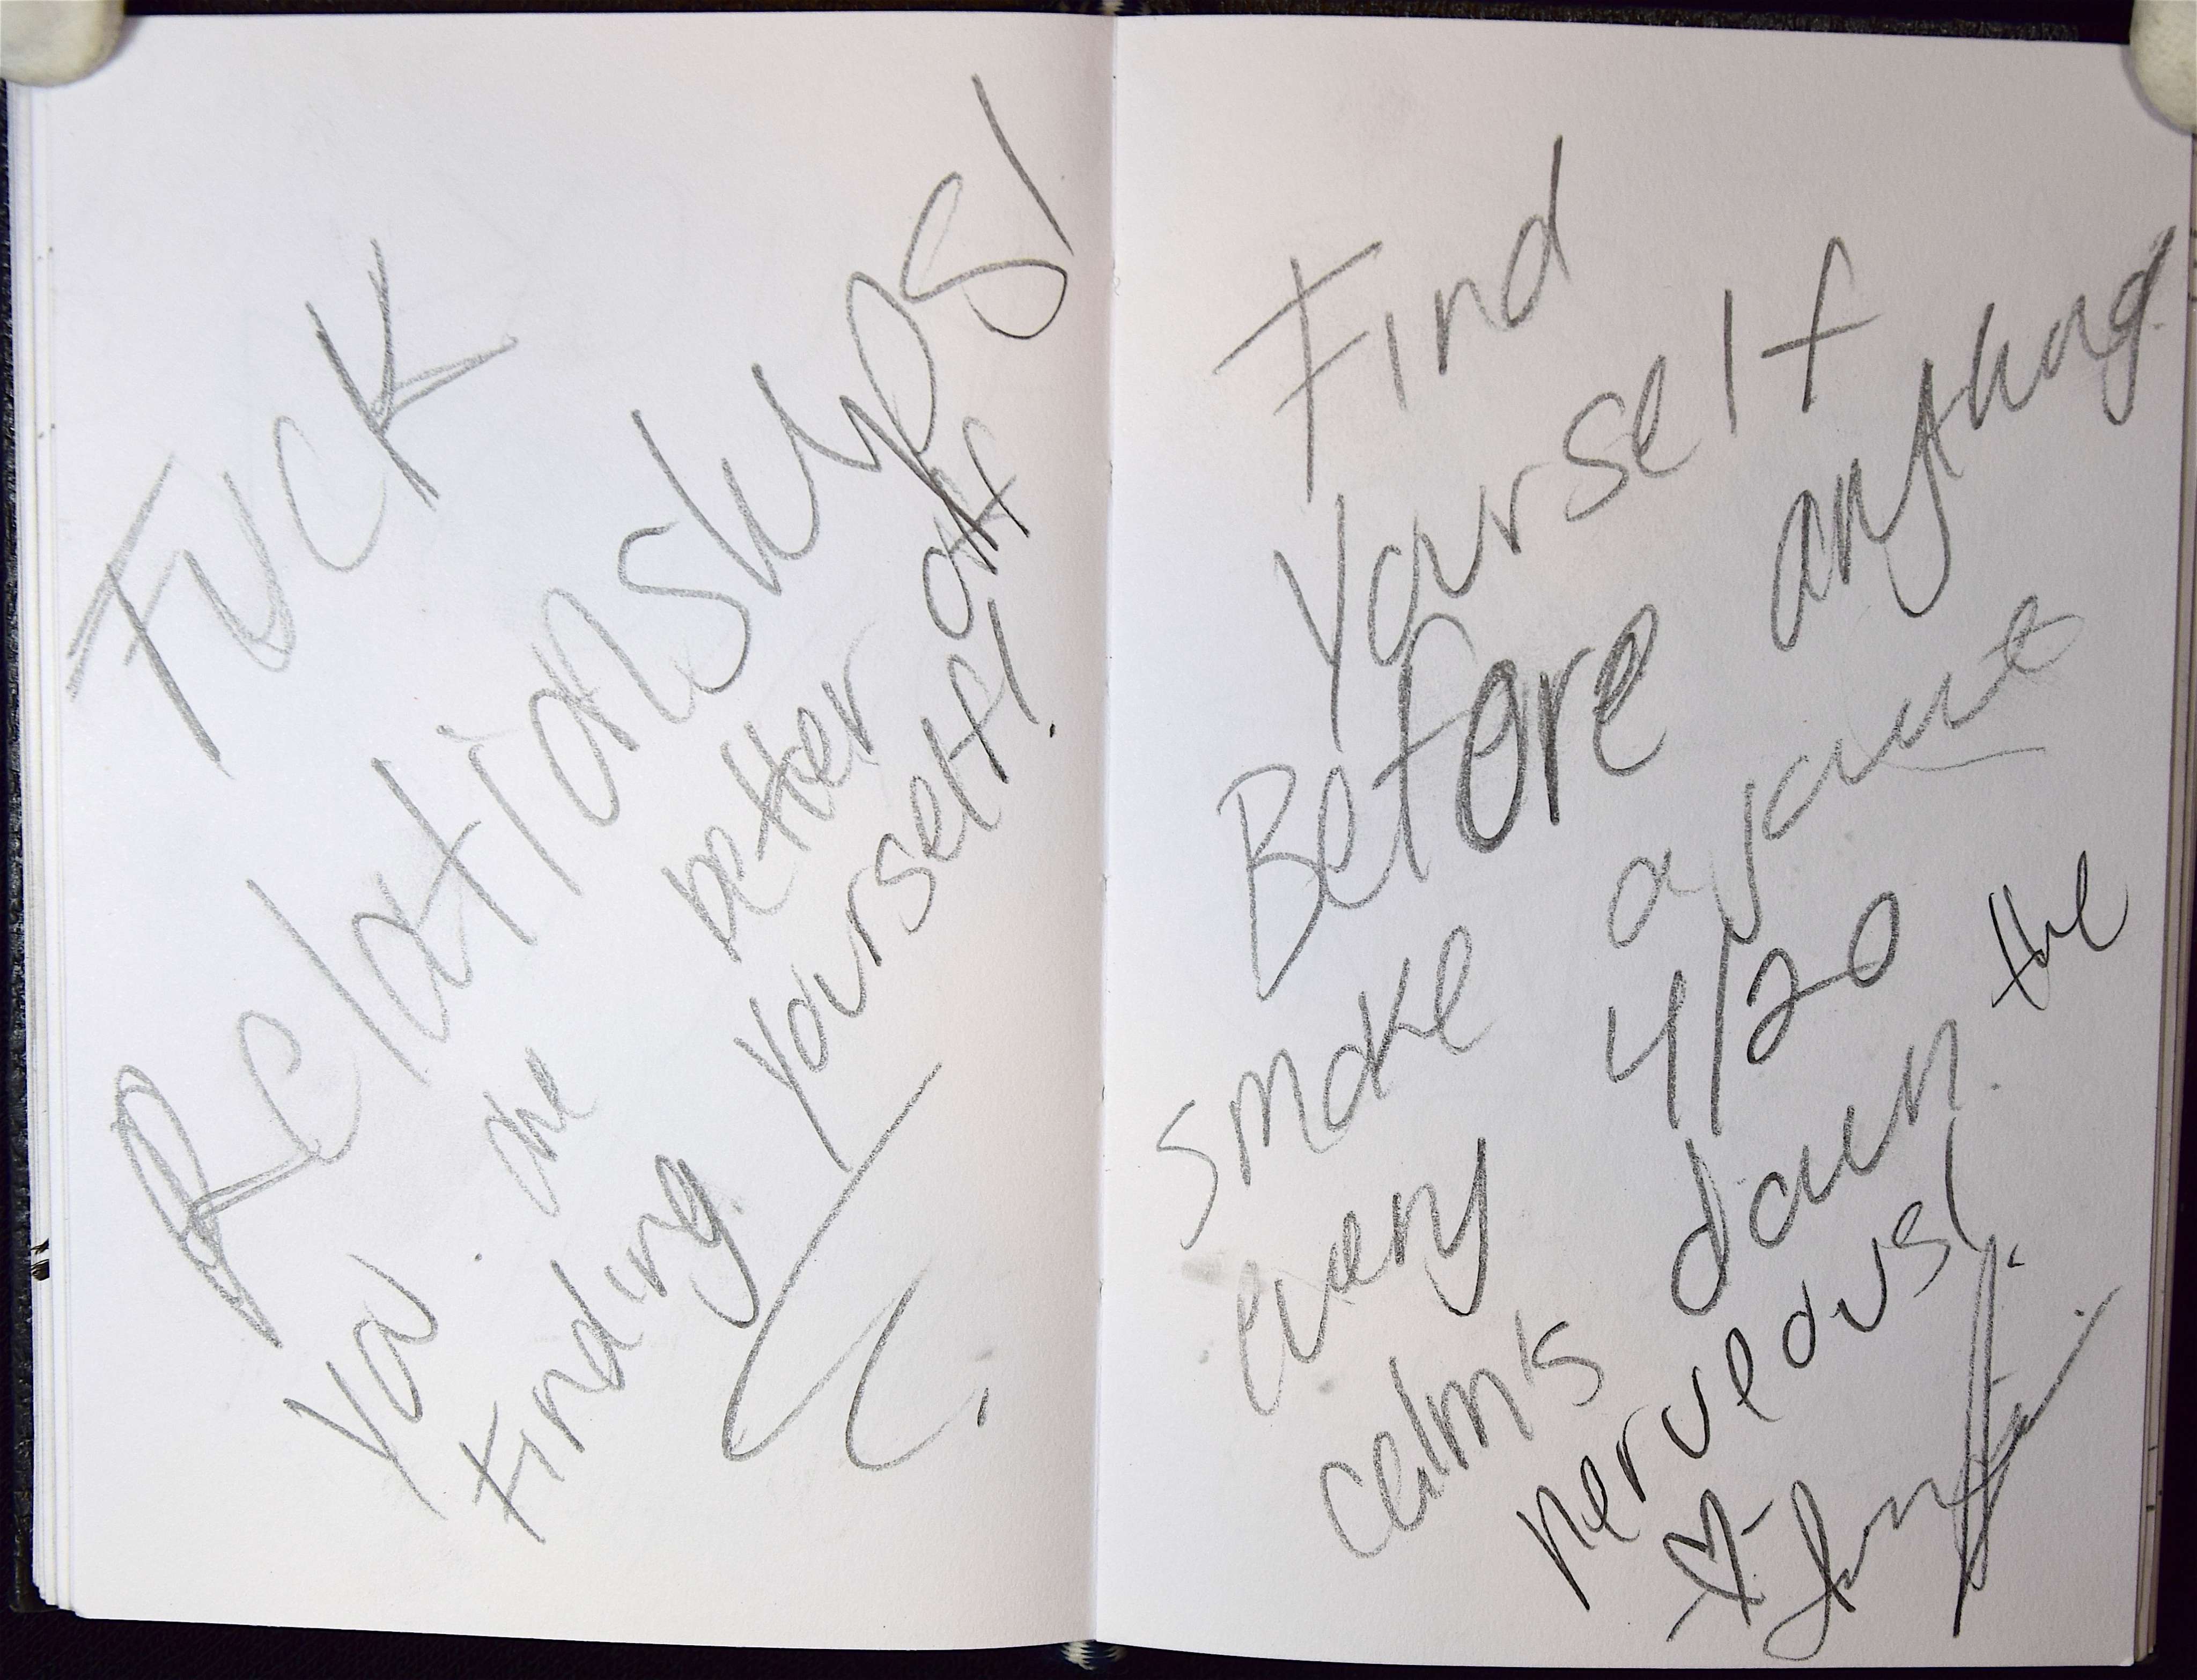 FUCK
Relationships!
You are better off
Finding yourself!
Find
yourself
Before anything
smoke a
every 4/20
calms down the
nerveous!